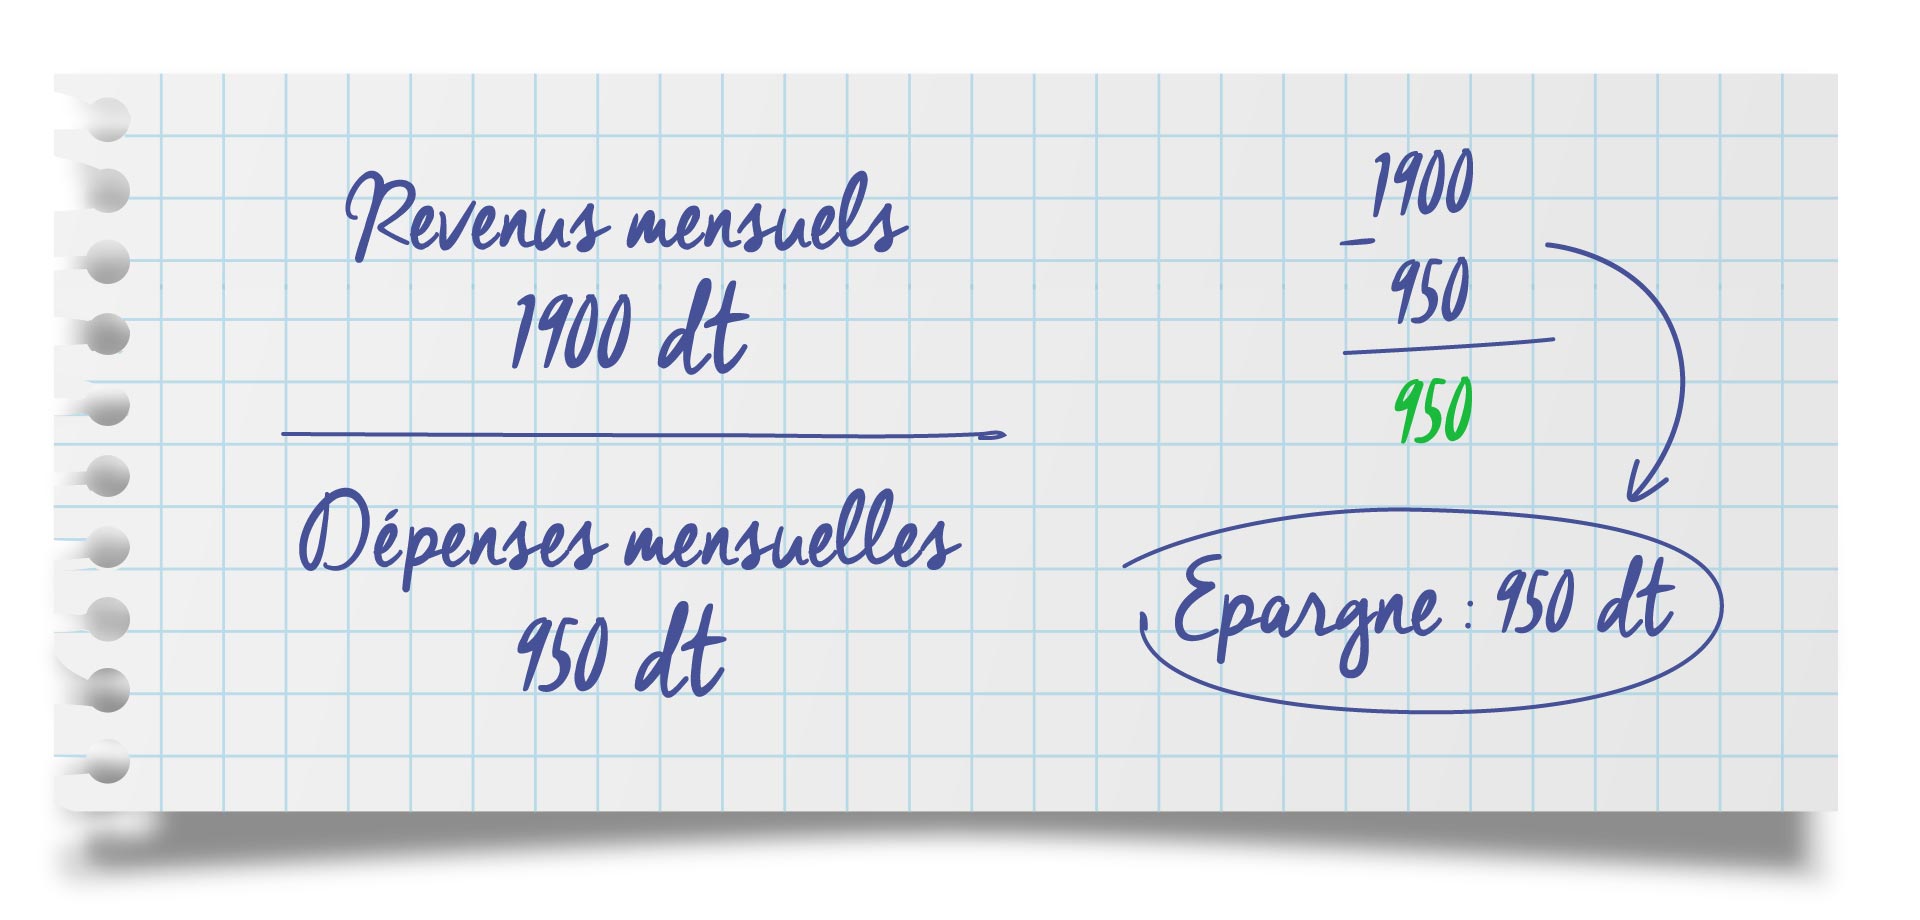 Revenus mensuels
1900 dt
Dépenses mensuelles
950 dt
1900
- 
950
950
Epargne : 950 dt